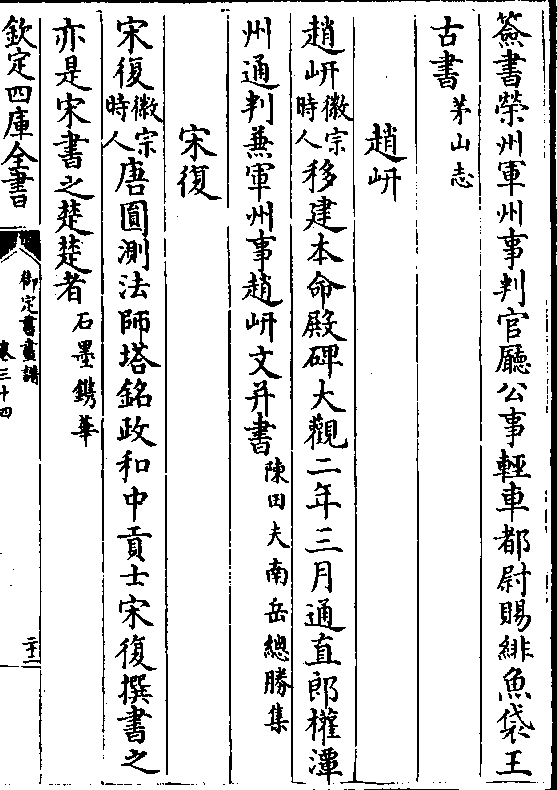 簽書榮州軍州事判官廳公事輕車都尉賜緋魚袋王
古書茅山志
趙岍
趙岍徽宗時人移建本命殿碑大觀二年三月通直郎權潭
州通判兼軍州事趙岍文并書陳田夫南岳總勝集
宋復
宋復徽宗時人唐圓測法師塔銘政和中貢士宋復撰書之
亦是宋書之楚楚者石墨鐫華
欽定四庫全書
御定書畫譜
卷三十四
二十二